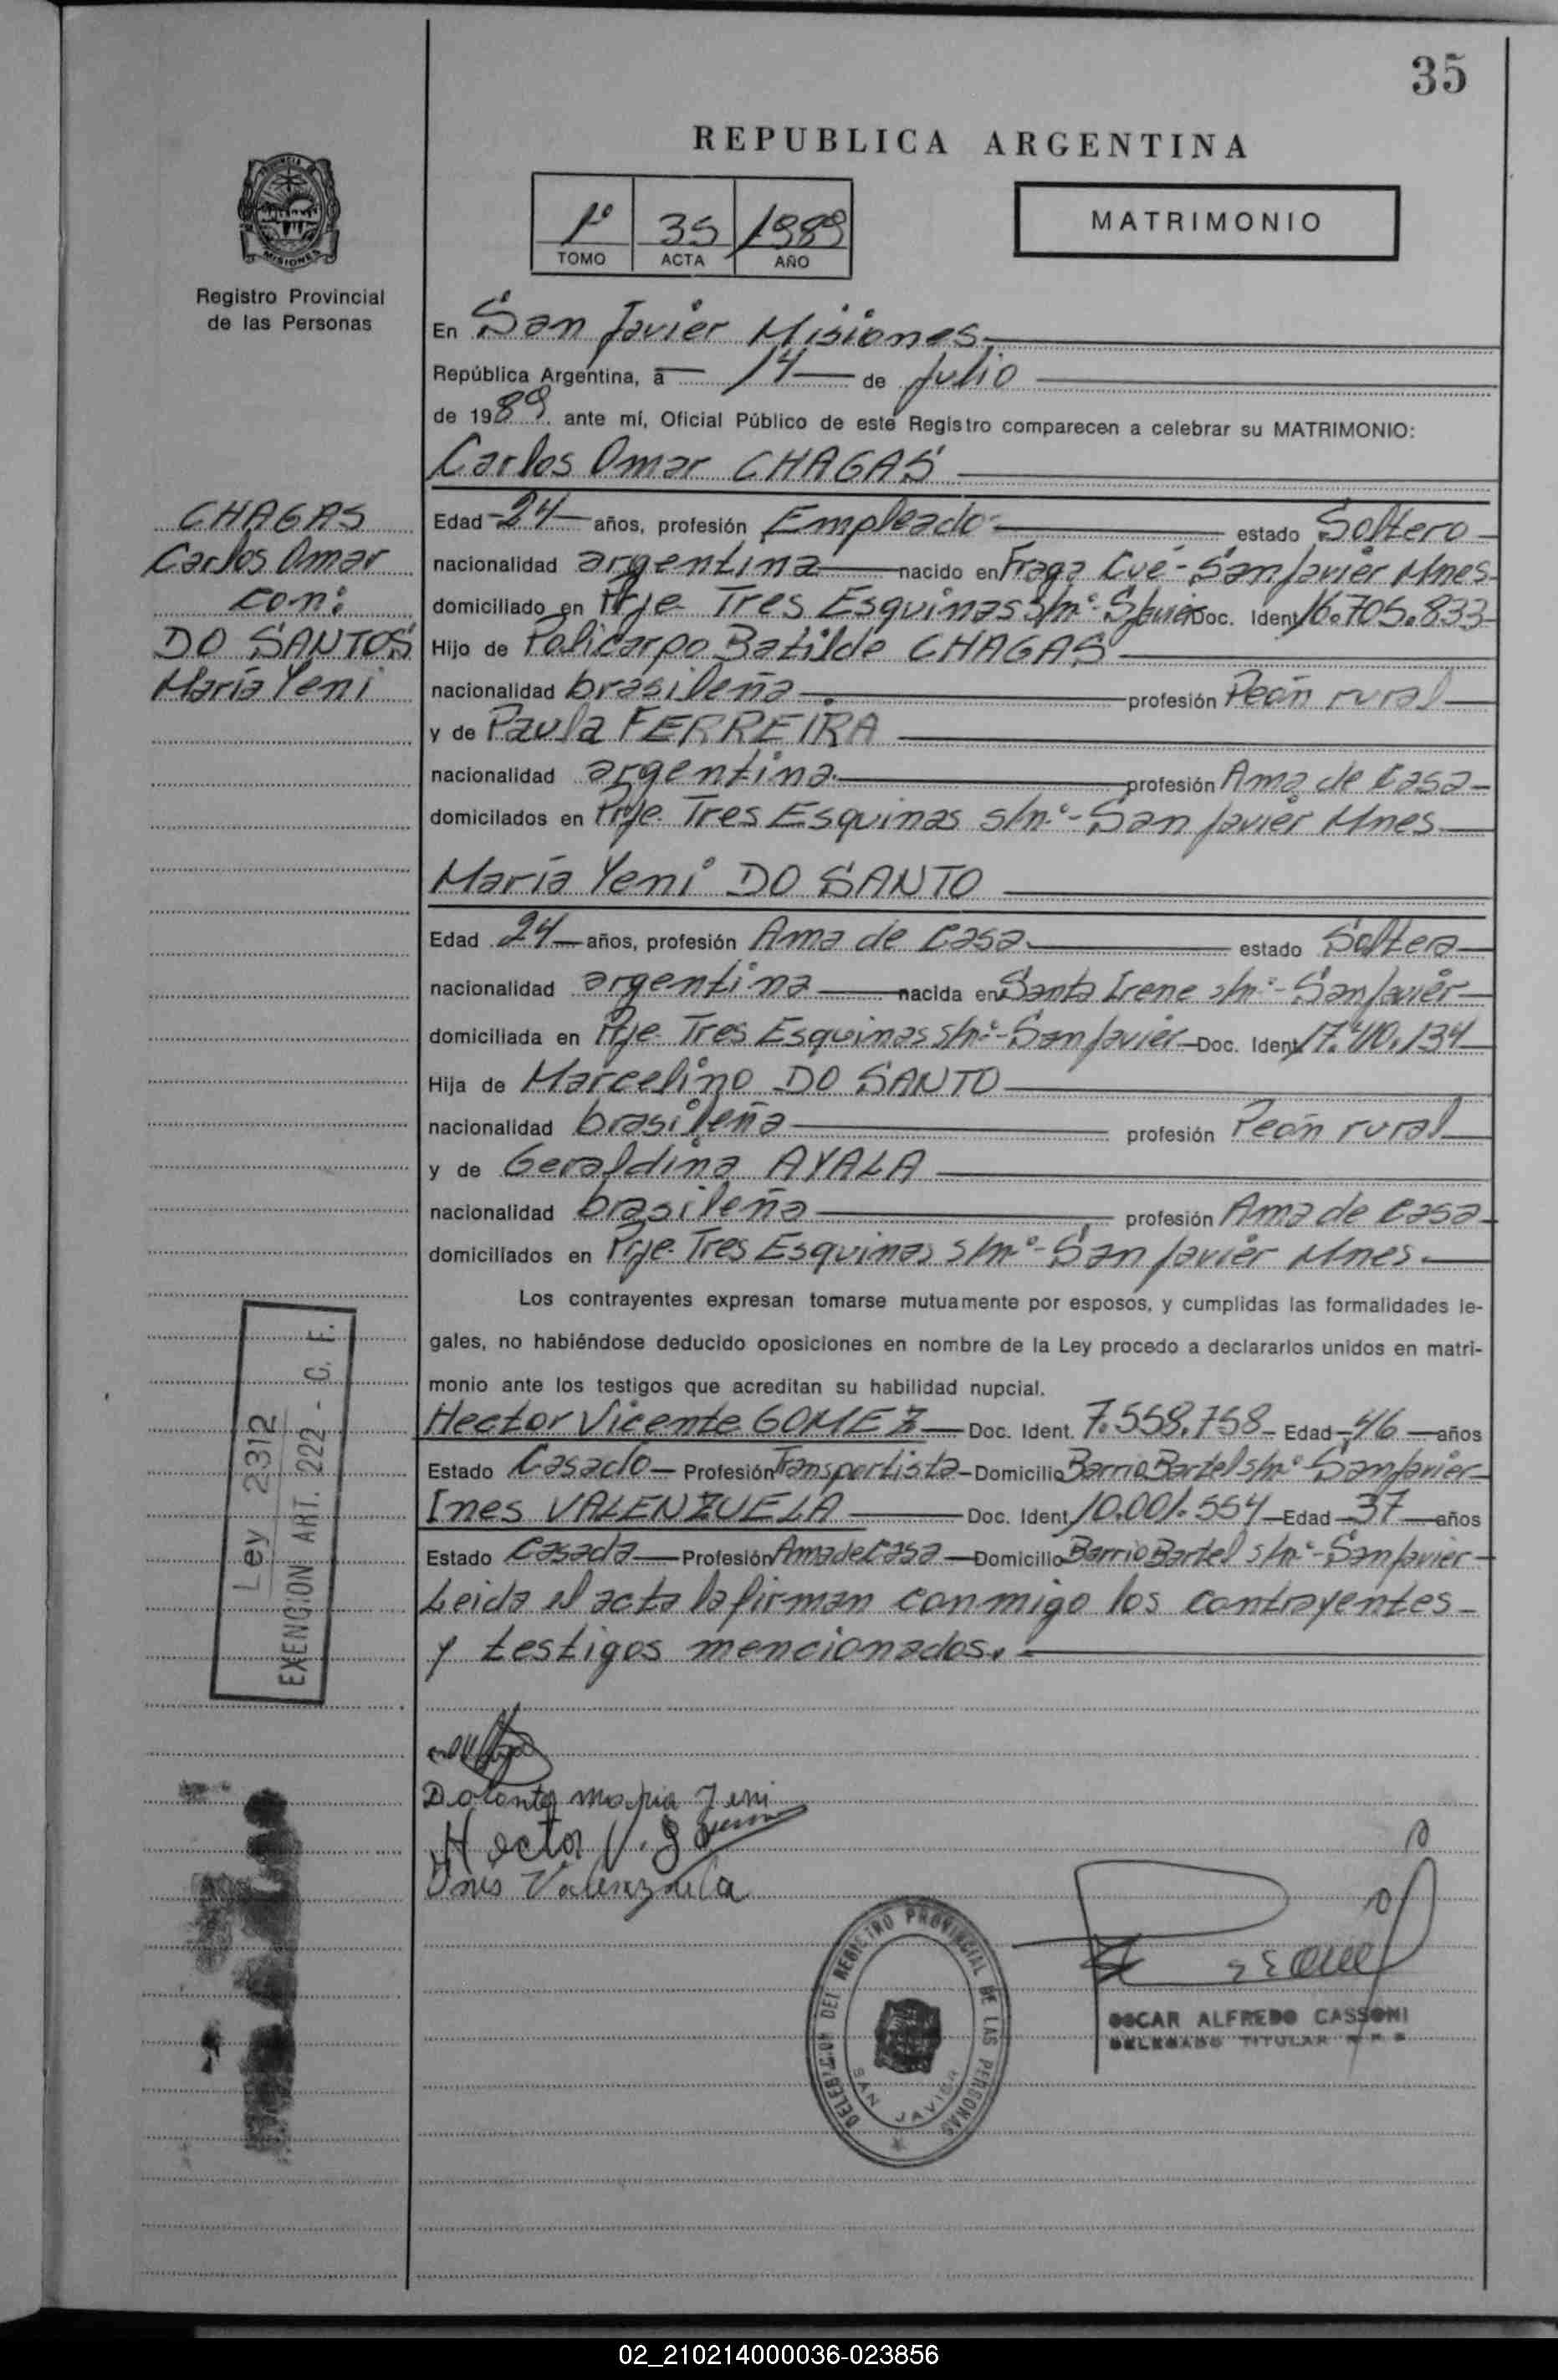 35
REPUBLICA ARGENTINA
1º 35 1989
TOMO ACTA AÑO
MATRIMONIO
PROVINCIA DE
MISIONES
Registro Provincial
de las Personas
En San Javier Misiones
República Argentina, a 14 de Julio
de 1989 ante mí, Oficial Público de este Registro comparecen a celebrar su MATRIMONIO:
Carlos Omar CHAGAS
CHAGAS
Carlos Omar
con:
DO SANTOS
María Yeni
Edad 24 años, profesión Empleado estado Soltero
nacionalidad argentina nacido en Fraga Cué - San Javier Mnes
domiciliado en Prje Tres Esquinas s/nº - S Javier Doc. Ident 16.705.833
Hijo de Policarpo Batilde CHAGAS
nacionalidad brasileña profesión Peón rural
y de Paula FERREIRA
nacionalidad argentina profesión Ama de Casa
domicilados en Prje. Tres Esquinas s/nº - San Javier Mnes
María Yeni DO SANTO
Edad 24 años, profesión Ama de Casa estado Soltera
nacionalidad argentina nacida en Santa Irene s/nº - San Javier
domiciliada en Prje. Tres Esquinas s/nº - San Javier Doc. Ident 17.410.134
Hija de Marcelino DO SANTO
nacionalidad brasileña profesión Peón rural
y de Geraldina AYALA
nacionalidad brasileña profesión Ama de Casa
domiciliados en Prje. Tres Esquinas s/nº - San Javier Mnes.
Los contrayentes expresan tomarse mutuamente por esposos, y cumplidas las formalidades le-
gales, no habiéndose deducido oposiciones en nombre de la Ley procedo a declararlos unidos en matri-
monio ante los testigos que acreditan su habilidad nupcial.
Hector Vicente GOMEZ Doc. Ident. 7.558.758 Edad 46 años
Estado Casado Profesión Transportista Domicilio Barrio Bartel s/nº San Javier
Ines VALENZUELA Doc. Ident 10.001.554 Edad 37 años
Estado Casada Profesión Ama de Casa Domicilio Barrio Bartel s/nº - San Javier
Leida el acta la firman conmigo los contrayentes
y testigos mencionados.
Ley 2312
EXENCION ART. 222 - C. F.
Dosanto maria Jeni
Hector V. Gomez
Ines Valenzuela
DELEGACION DEL REGISTRO PROVINCIAL DE LAS PERSONAS
SAN JAVIER
OSCAR ALFREDO CASSONI
DELEGADO TITULAR
02_210214000036-023856